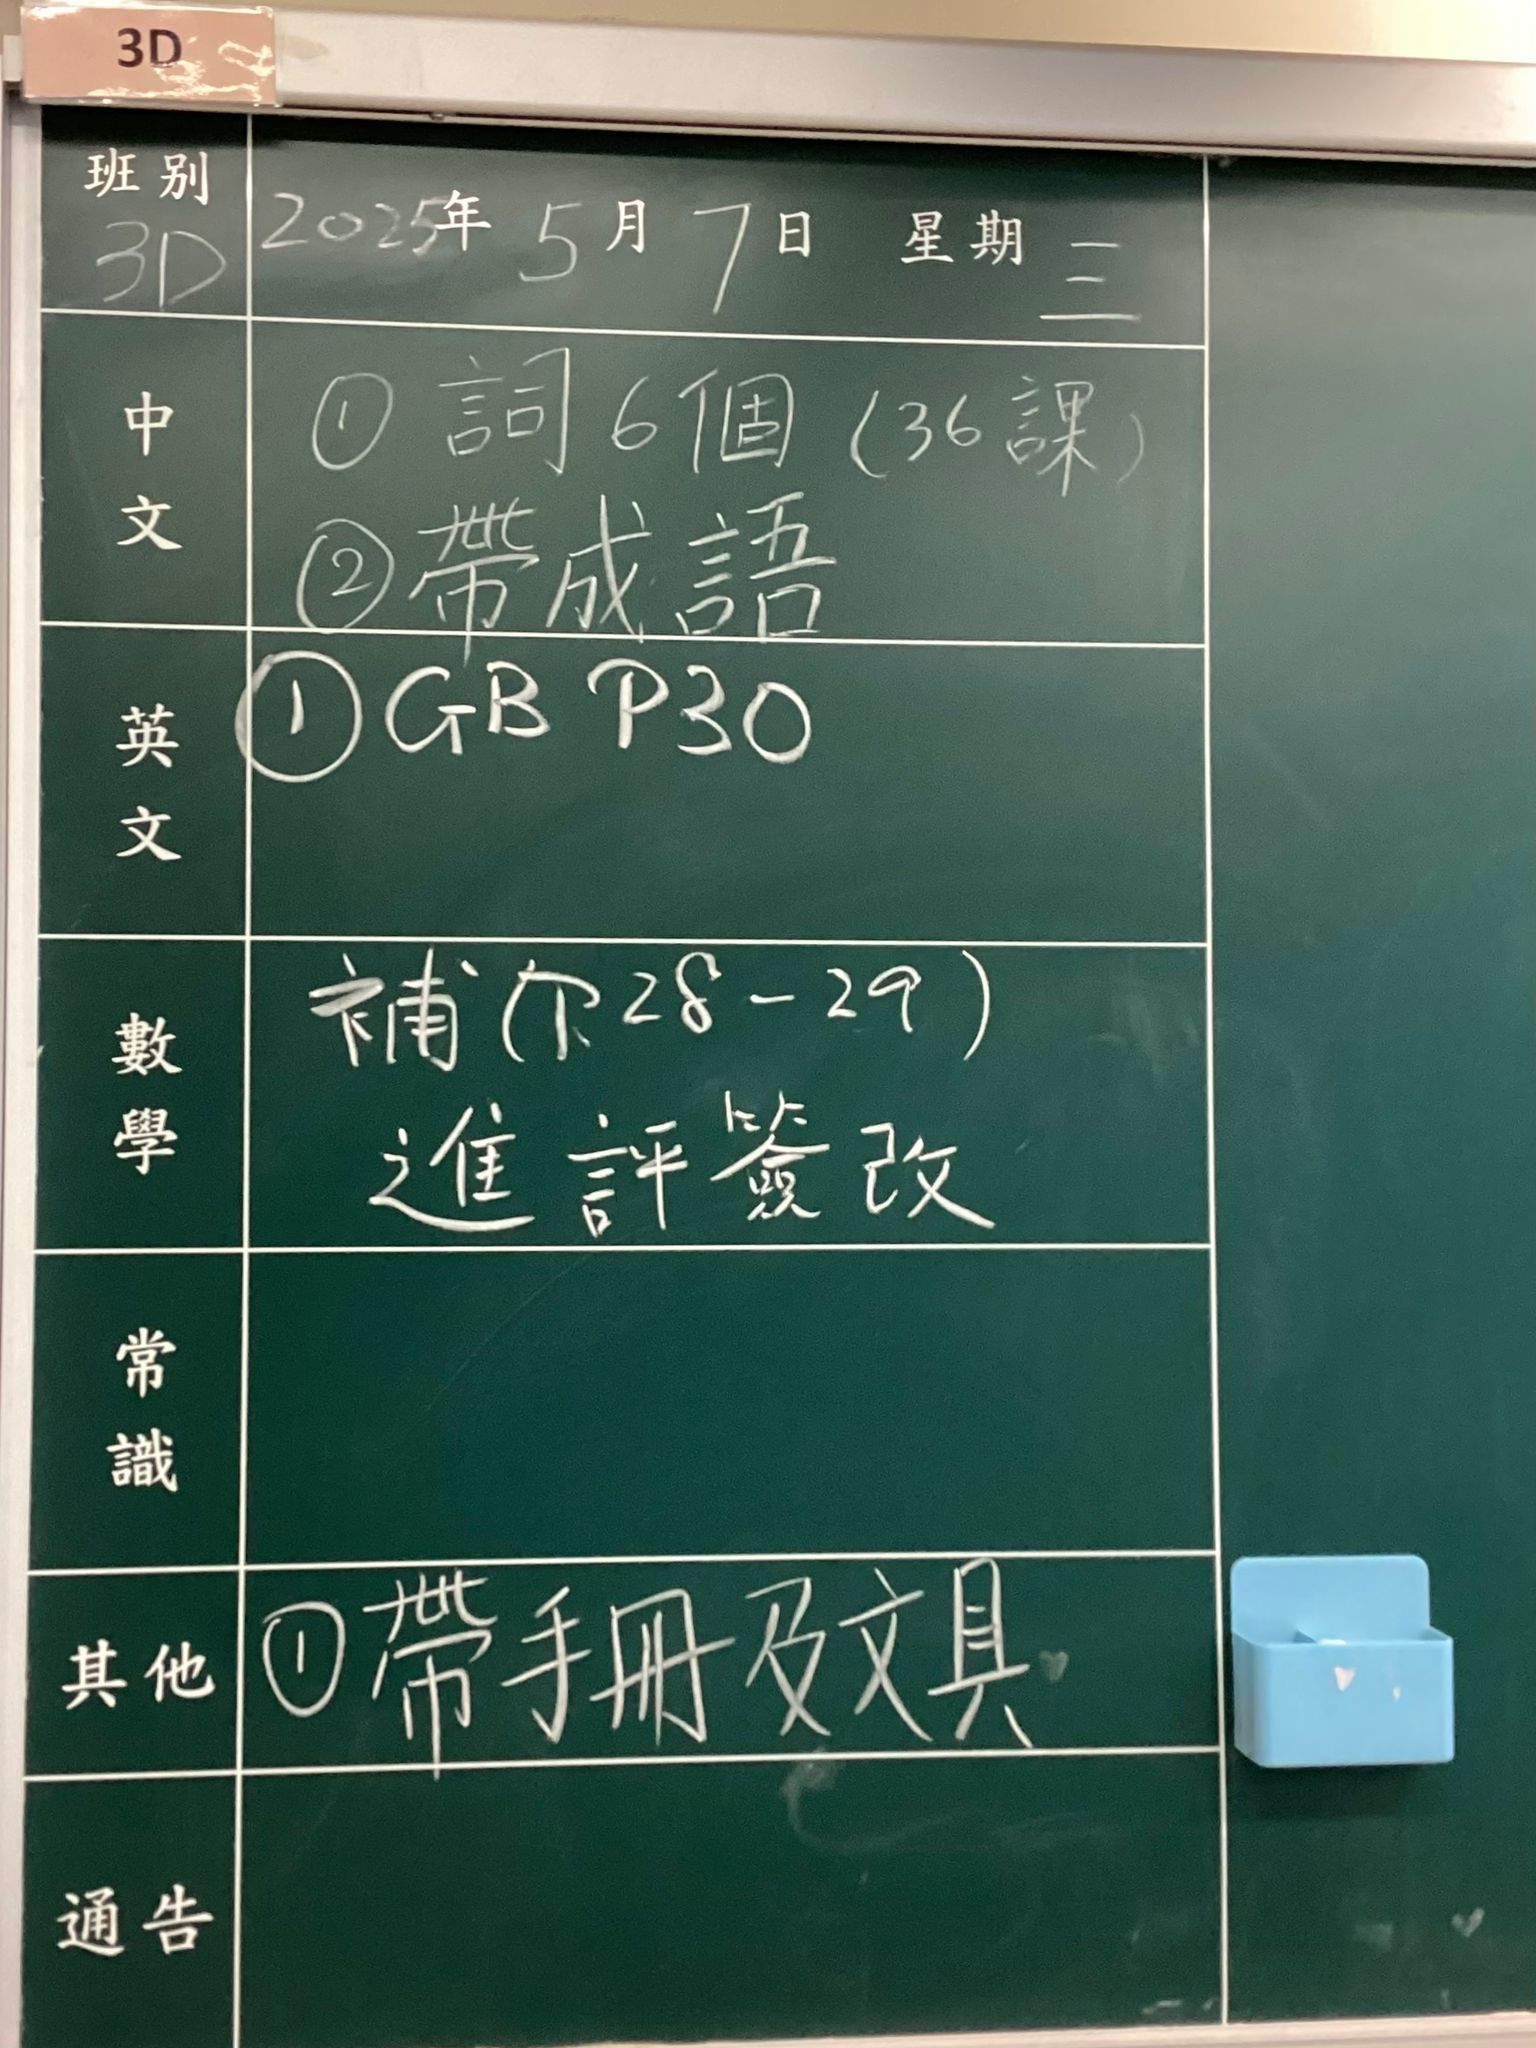 3D
班別
3D
2025年 5月7日 星期三
中文
① 詞6個 (36課)
② 帶成語
英文
① GB P30
數學
補(下28-29)
進評簽改
常識
其他
① 帶手冊及文具
通告